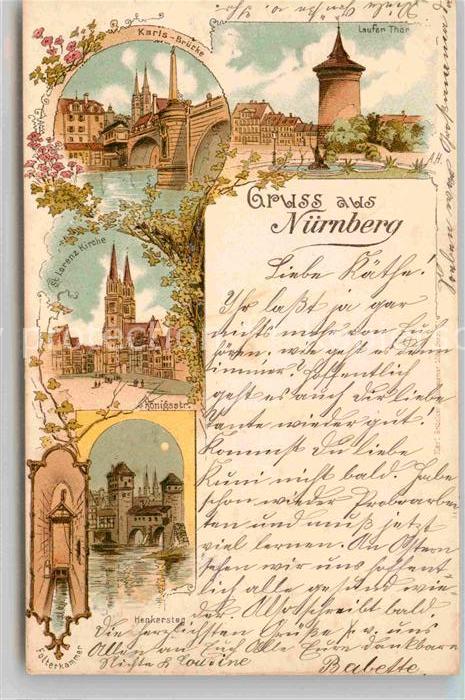 Karls-Brücke
Laufer Thor
A.H.
Gruss aus
Nürnberg
St. Lorenz Kirche
Königsstr.
Henkersteg
Folterkammer
Liebe Käthe!
Ihr laßt ja gar
nichts mehr von Euch
hören, wie geht es denn
immer? Hoffentlich
geht es auch der lieben
Tante wieder gut!
Kommst Du liebe
Kuni nicht bald. Habe
schon wieder Probearbei-
ten und muß jetzt
viel lernen. An Ostern
sehen wir uns hoffent
lich alle gesund wie-
der. Also schreibt bald
Die herzlichsten Grüße v. uns
Allen an Euch Alle Eure dankbare
Nichte & Cousine
Babette.